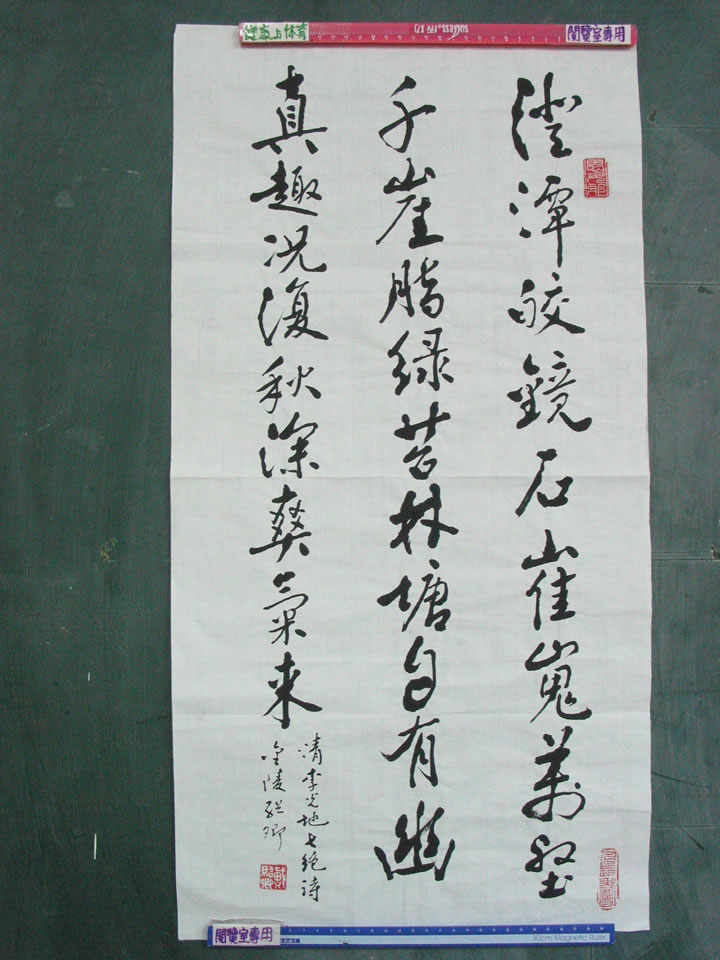 閱覽室專用
澄潭皎鏡石崔嵬萬壑
千崖暗綠苔林塘自有幽
真趣况復秋深爽氣來
清李光地七絕詩
金陵
閱覽室專用
30cm Magnetic Ruler